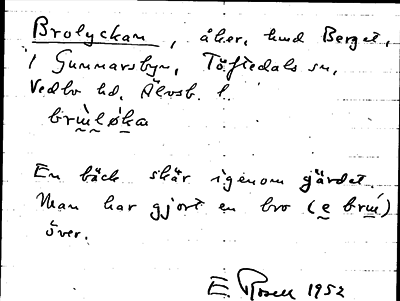 Brolyckan, åker, hmd Berget,
i Gunnarsbyn, Töftedals sn,
Vedbo hd, Älvsb. l.
En bäck skär igenom gärdet.
Man har gjort en bro (e
över.
E. Rosell 1952